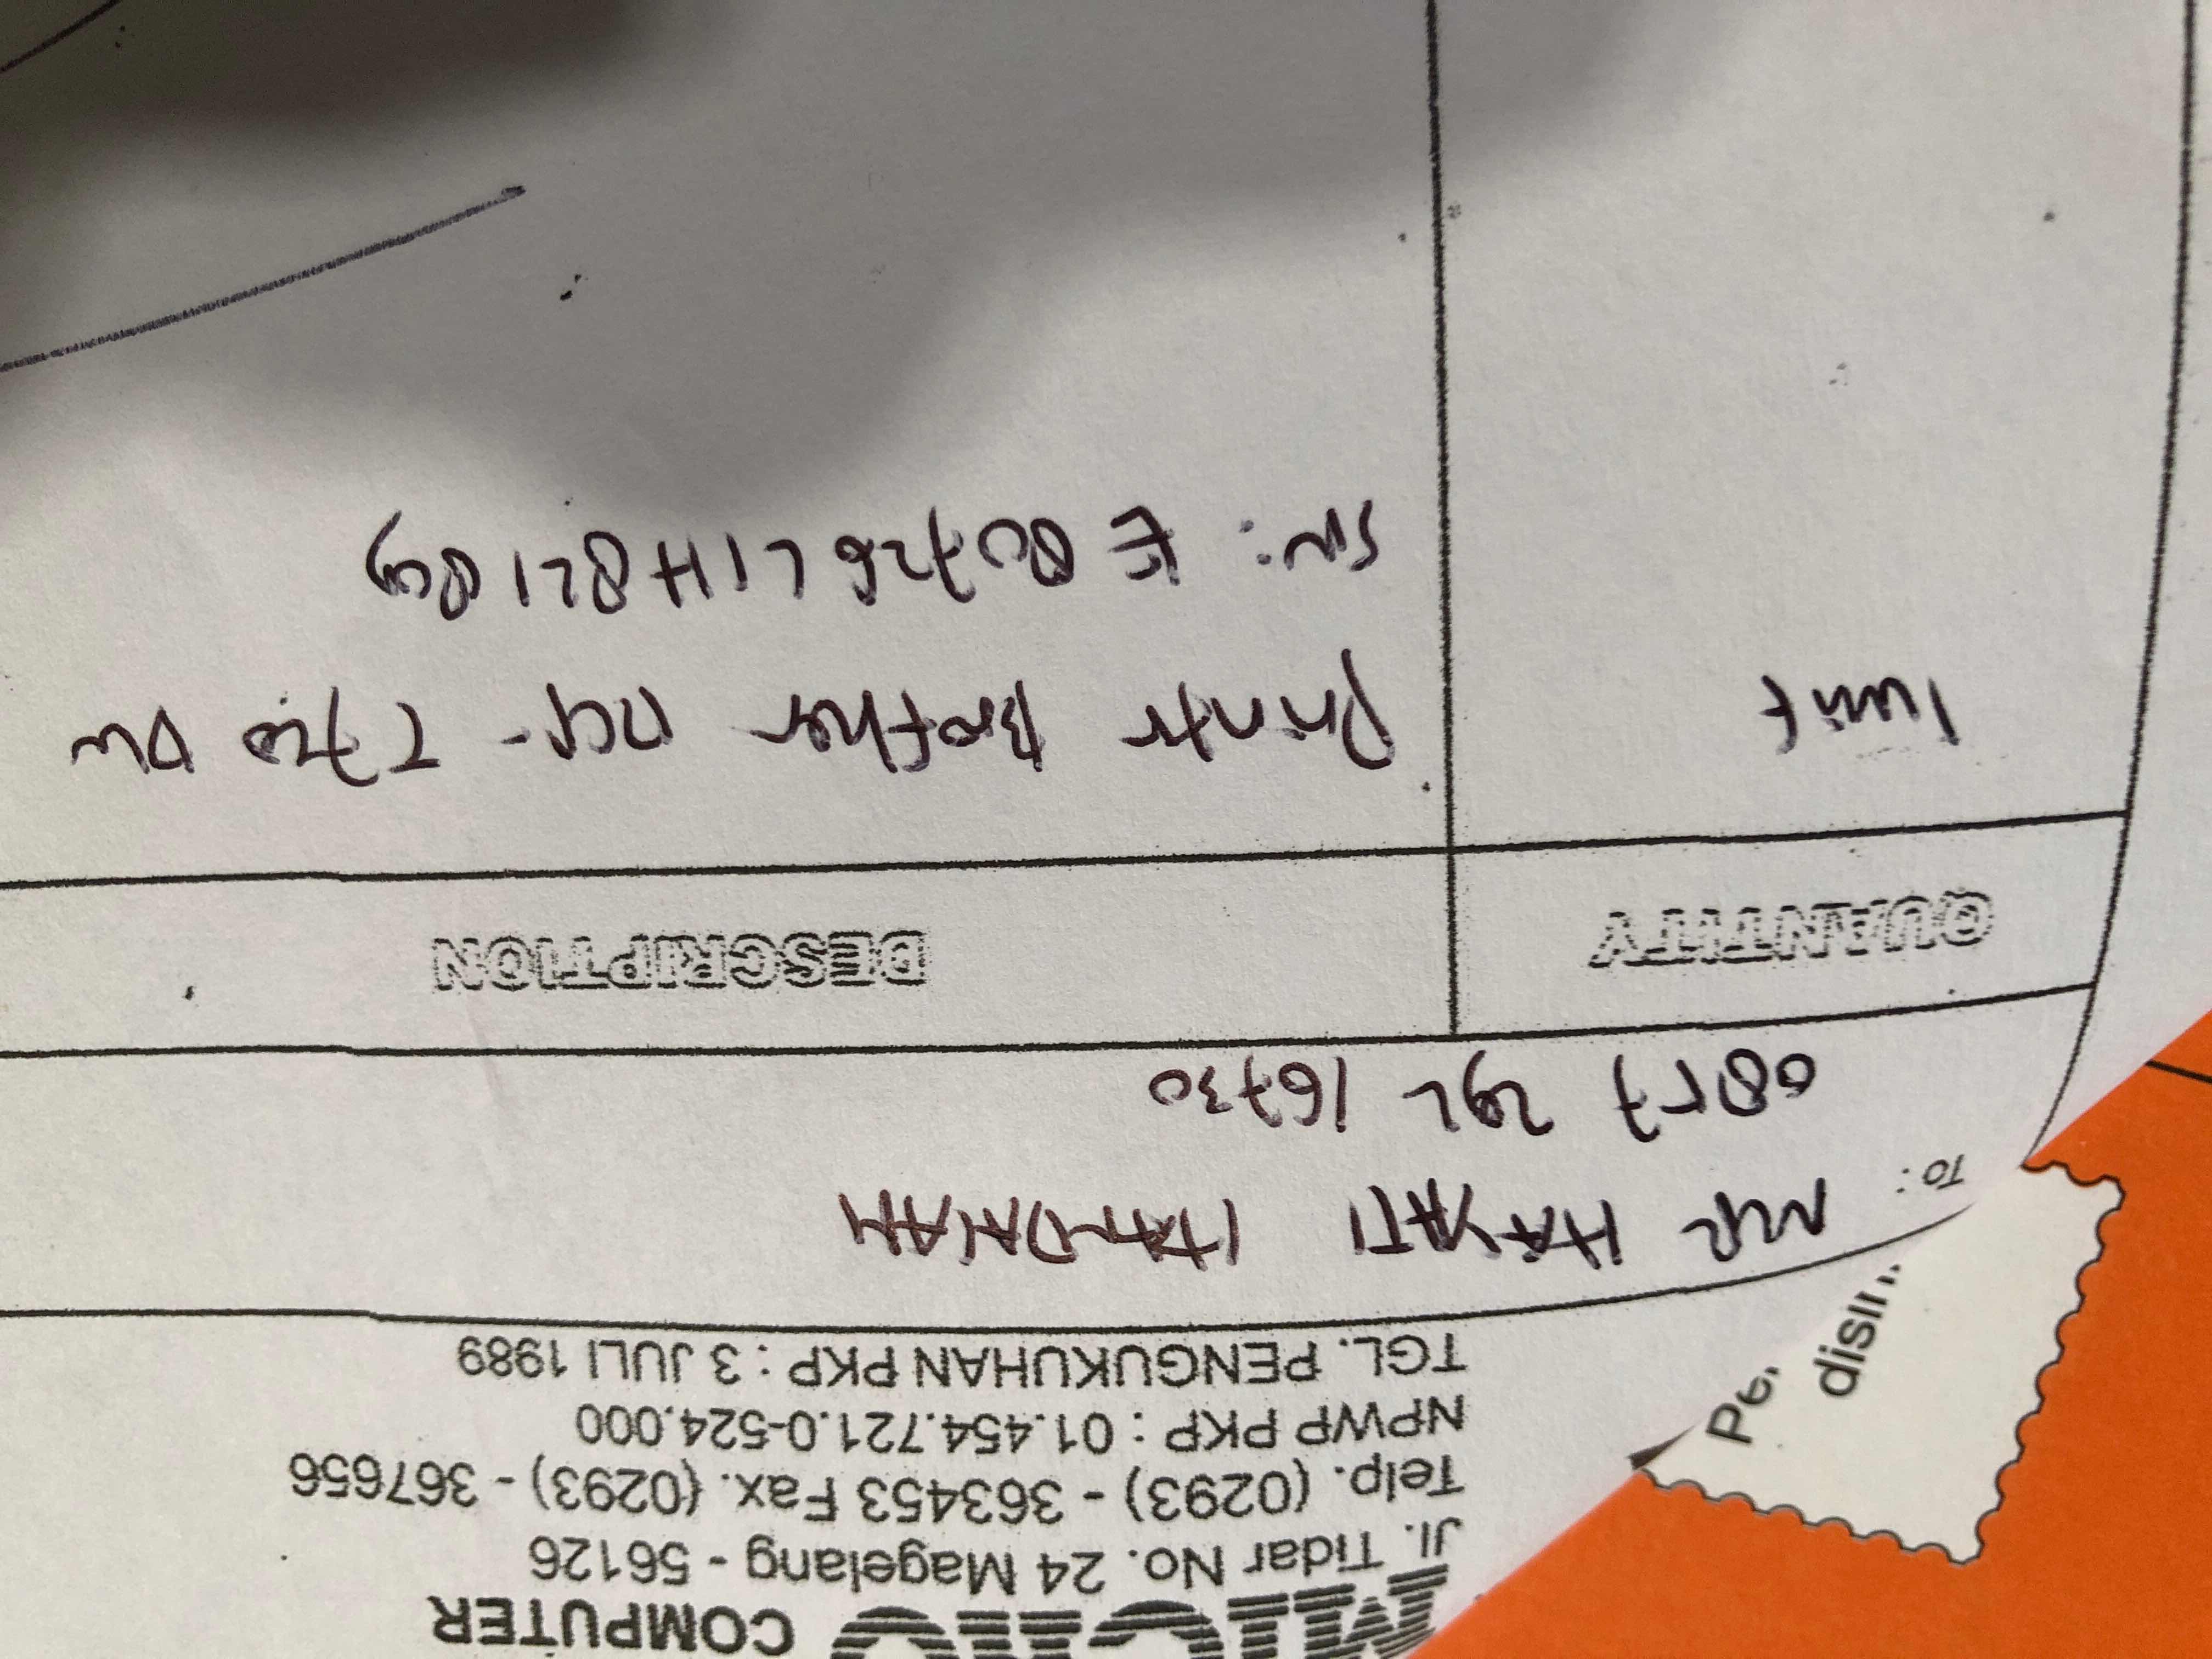 COMPUTER
Jl. Tidar No. 24 Magelang - 56126
Telp. (0293) - 363453 Fax. (0293) - 367656
NPWP PKP : 01.454.721.0-524.000
TGL. PENGUKUHAN PKP : 3 JULI 1989
TO : HAYATI HANDAYANI
0857 292 16730
QUANTITY DESCRIPTION
1 unit Printer Brother DCP - T720 DW
SN : E80726L1H821869